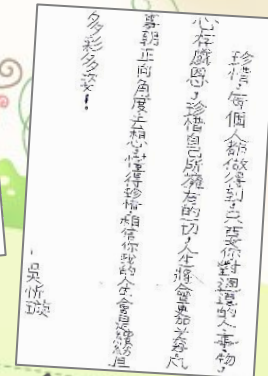 珍惜,每個人都做得到,只要你對週遭的人事物,
心存感恩,珍惜自己所擁有的一切,人生將會更加美好,凡
事朝正向角度去想,懂得珍惜,相信你我的人生會更繽紛且
多彩多姿!
吳忻璇